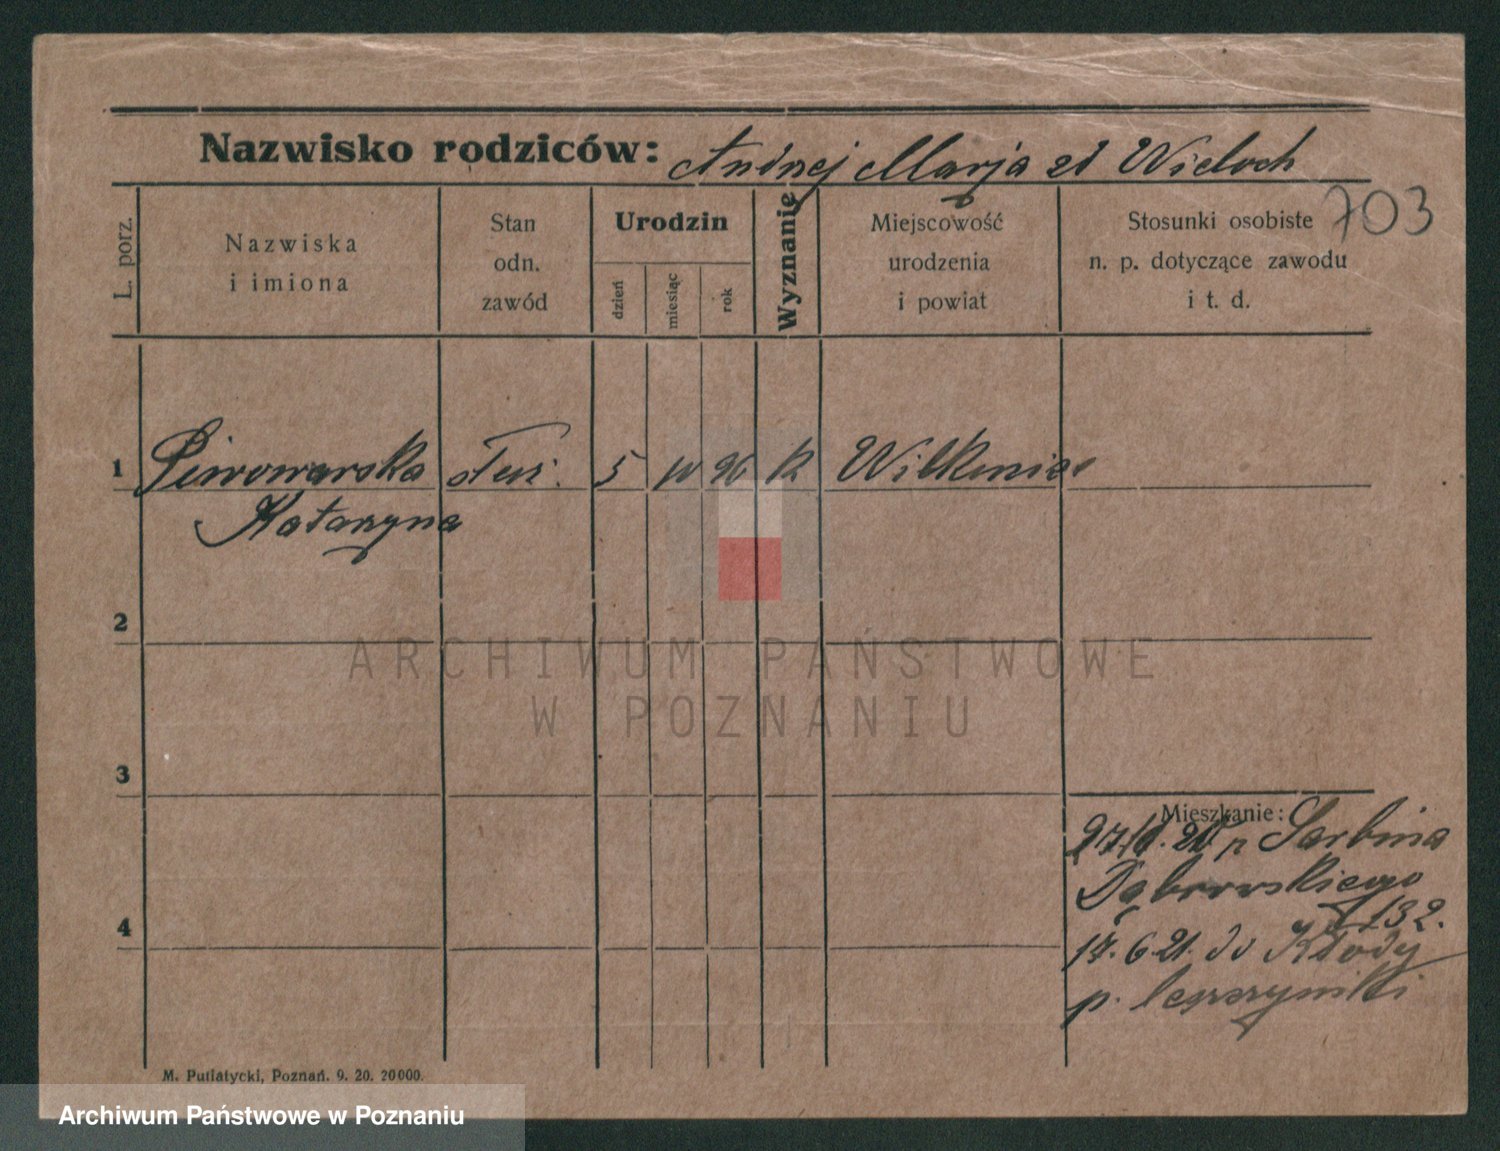 Nazwisko rodziców: Andrzej Marja zd Wieloch
703
L. porz.
Nazwiska
i imiona
Stan
odn.
zawód
Urodzin
dzień
miesiąc
rok
Wyznanie
Miejscowość
urodzenia
i powiat
Stosunki osobiste
n. p. dotyczące zawodu
i t. d.
1 Piwowarska 5 96 K
Katarzyna
2
ARCHIWUM PAŃSTWOWE
W POZNANIU
3
Mieszkanie:
Sarbina
Dąbrowskiego
132.
4
17. 6. 21. do Kłody
p.
M. Putiatycki, Poznań. 9. 20. 20000.
Archiwum Państwowe w Poznaniu